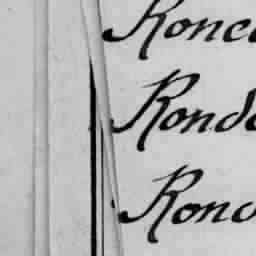 Ronc
Rond
Rono